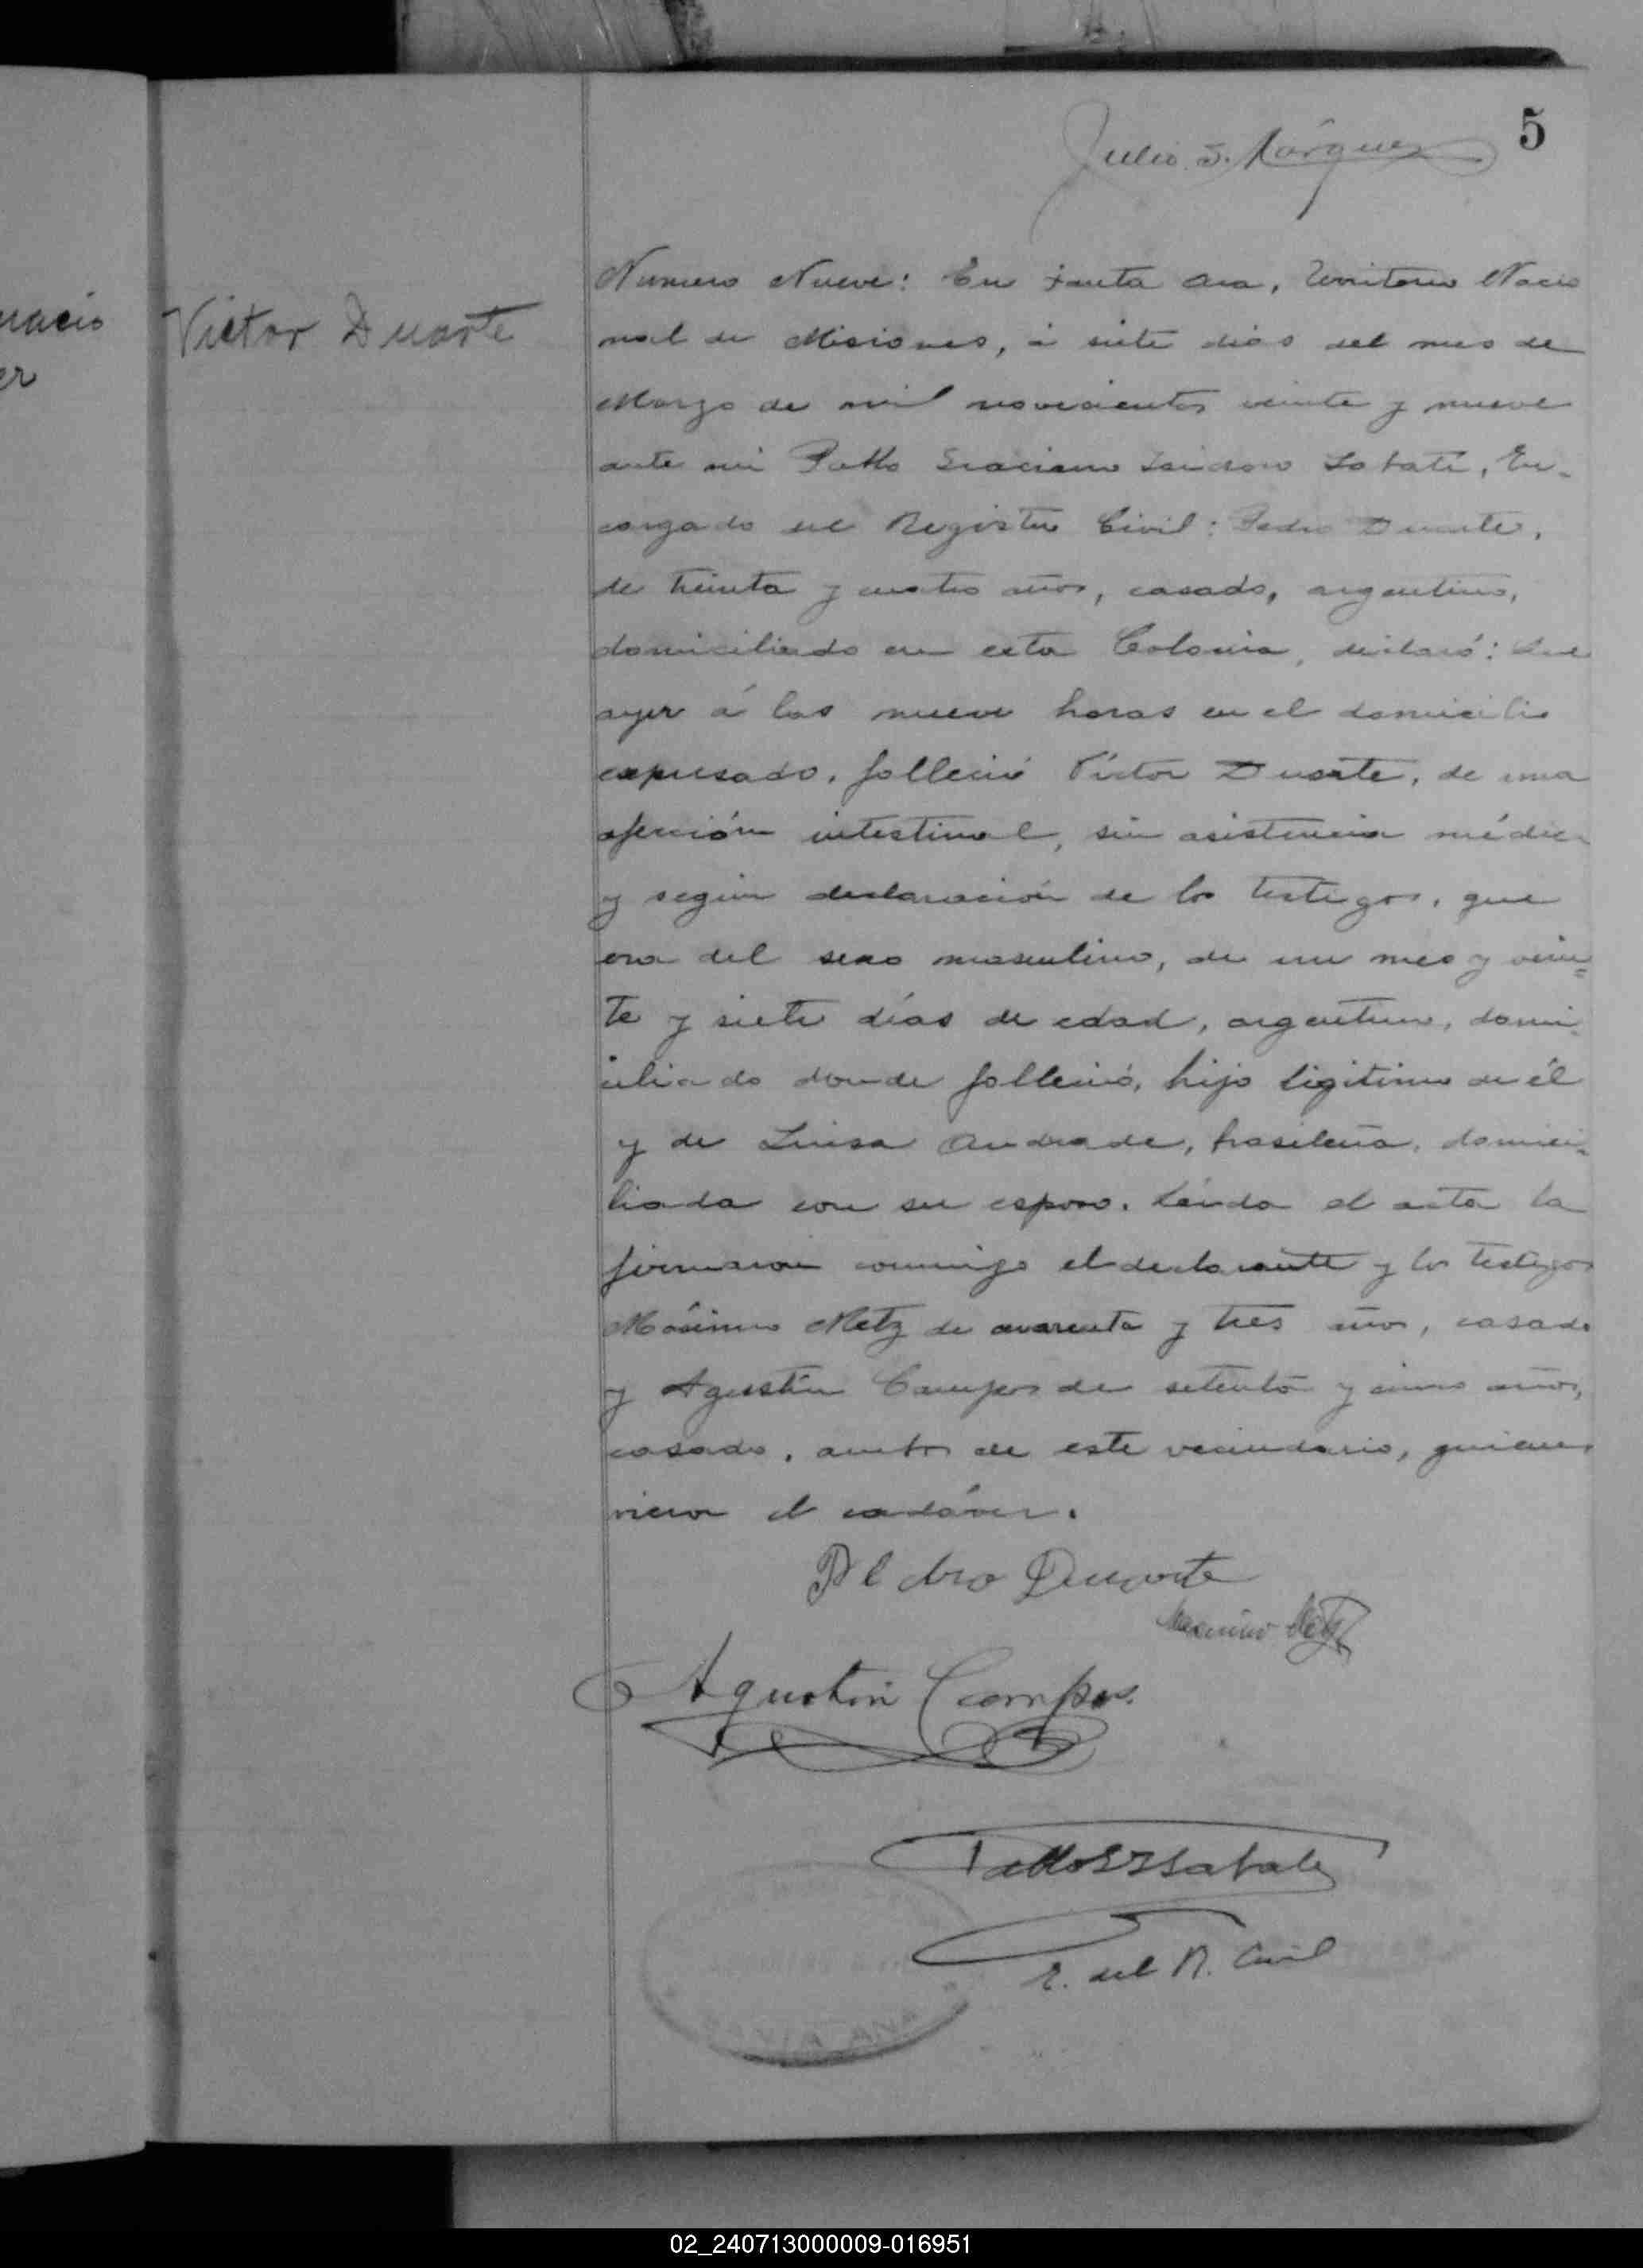 5
Julio S. Márquez
nacio
er
Victor Duarte
Numero Nueve: En Santa Ana, Territorio Nacio
nal de Misiones, á siete dias del mes de
Marzo de mil novecientos veinte y nueve
ante mi Pablo Graciano Isidoro Sabaté, En-
cargado del Registro Civil: Pedro Duarte,
de treinta y cuatro años, casado, argentino,
domiciliado en esta Colonia, declaró: Que
ayer á las nueve horas en el domicilio
expresado, falleció Víctor Duarte, de una
afección intestinal, sin asistencia médica
y según declaración de los testigos, que
era del sexo masculino, de un mes y vein=
te y siete días de edad, argentino, domi-
ciliado donde falleció, hijo ligitimo de él
y de Luisa Andrade, brasileña, domici-
liada con su esposo. Leída el acta la
firmaron conmigo el declarante y los testigos
Máximo Metz de cuarenta y tres años, casado
y Agustín Campos de setenta y cinco años,
casado, ambos de este vecindario, quienes
vieron el cadáver.
Pedro Duarte
Maximo Metz
Agustin Campos.
Pablo G I Sabaté
E. del R. Civil
02_240713000009-016951